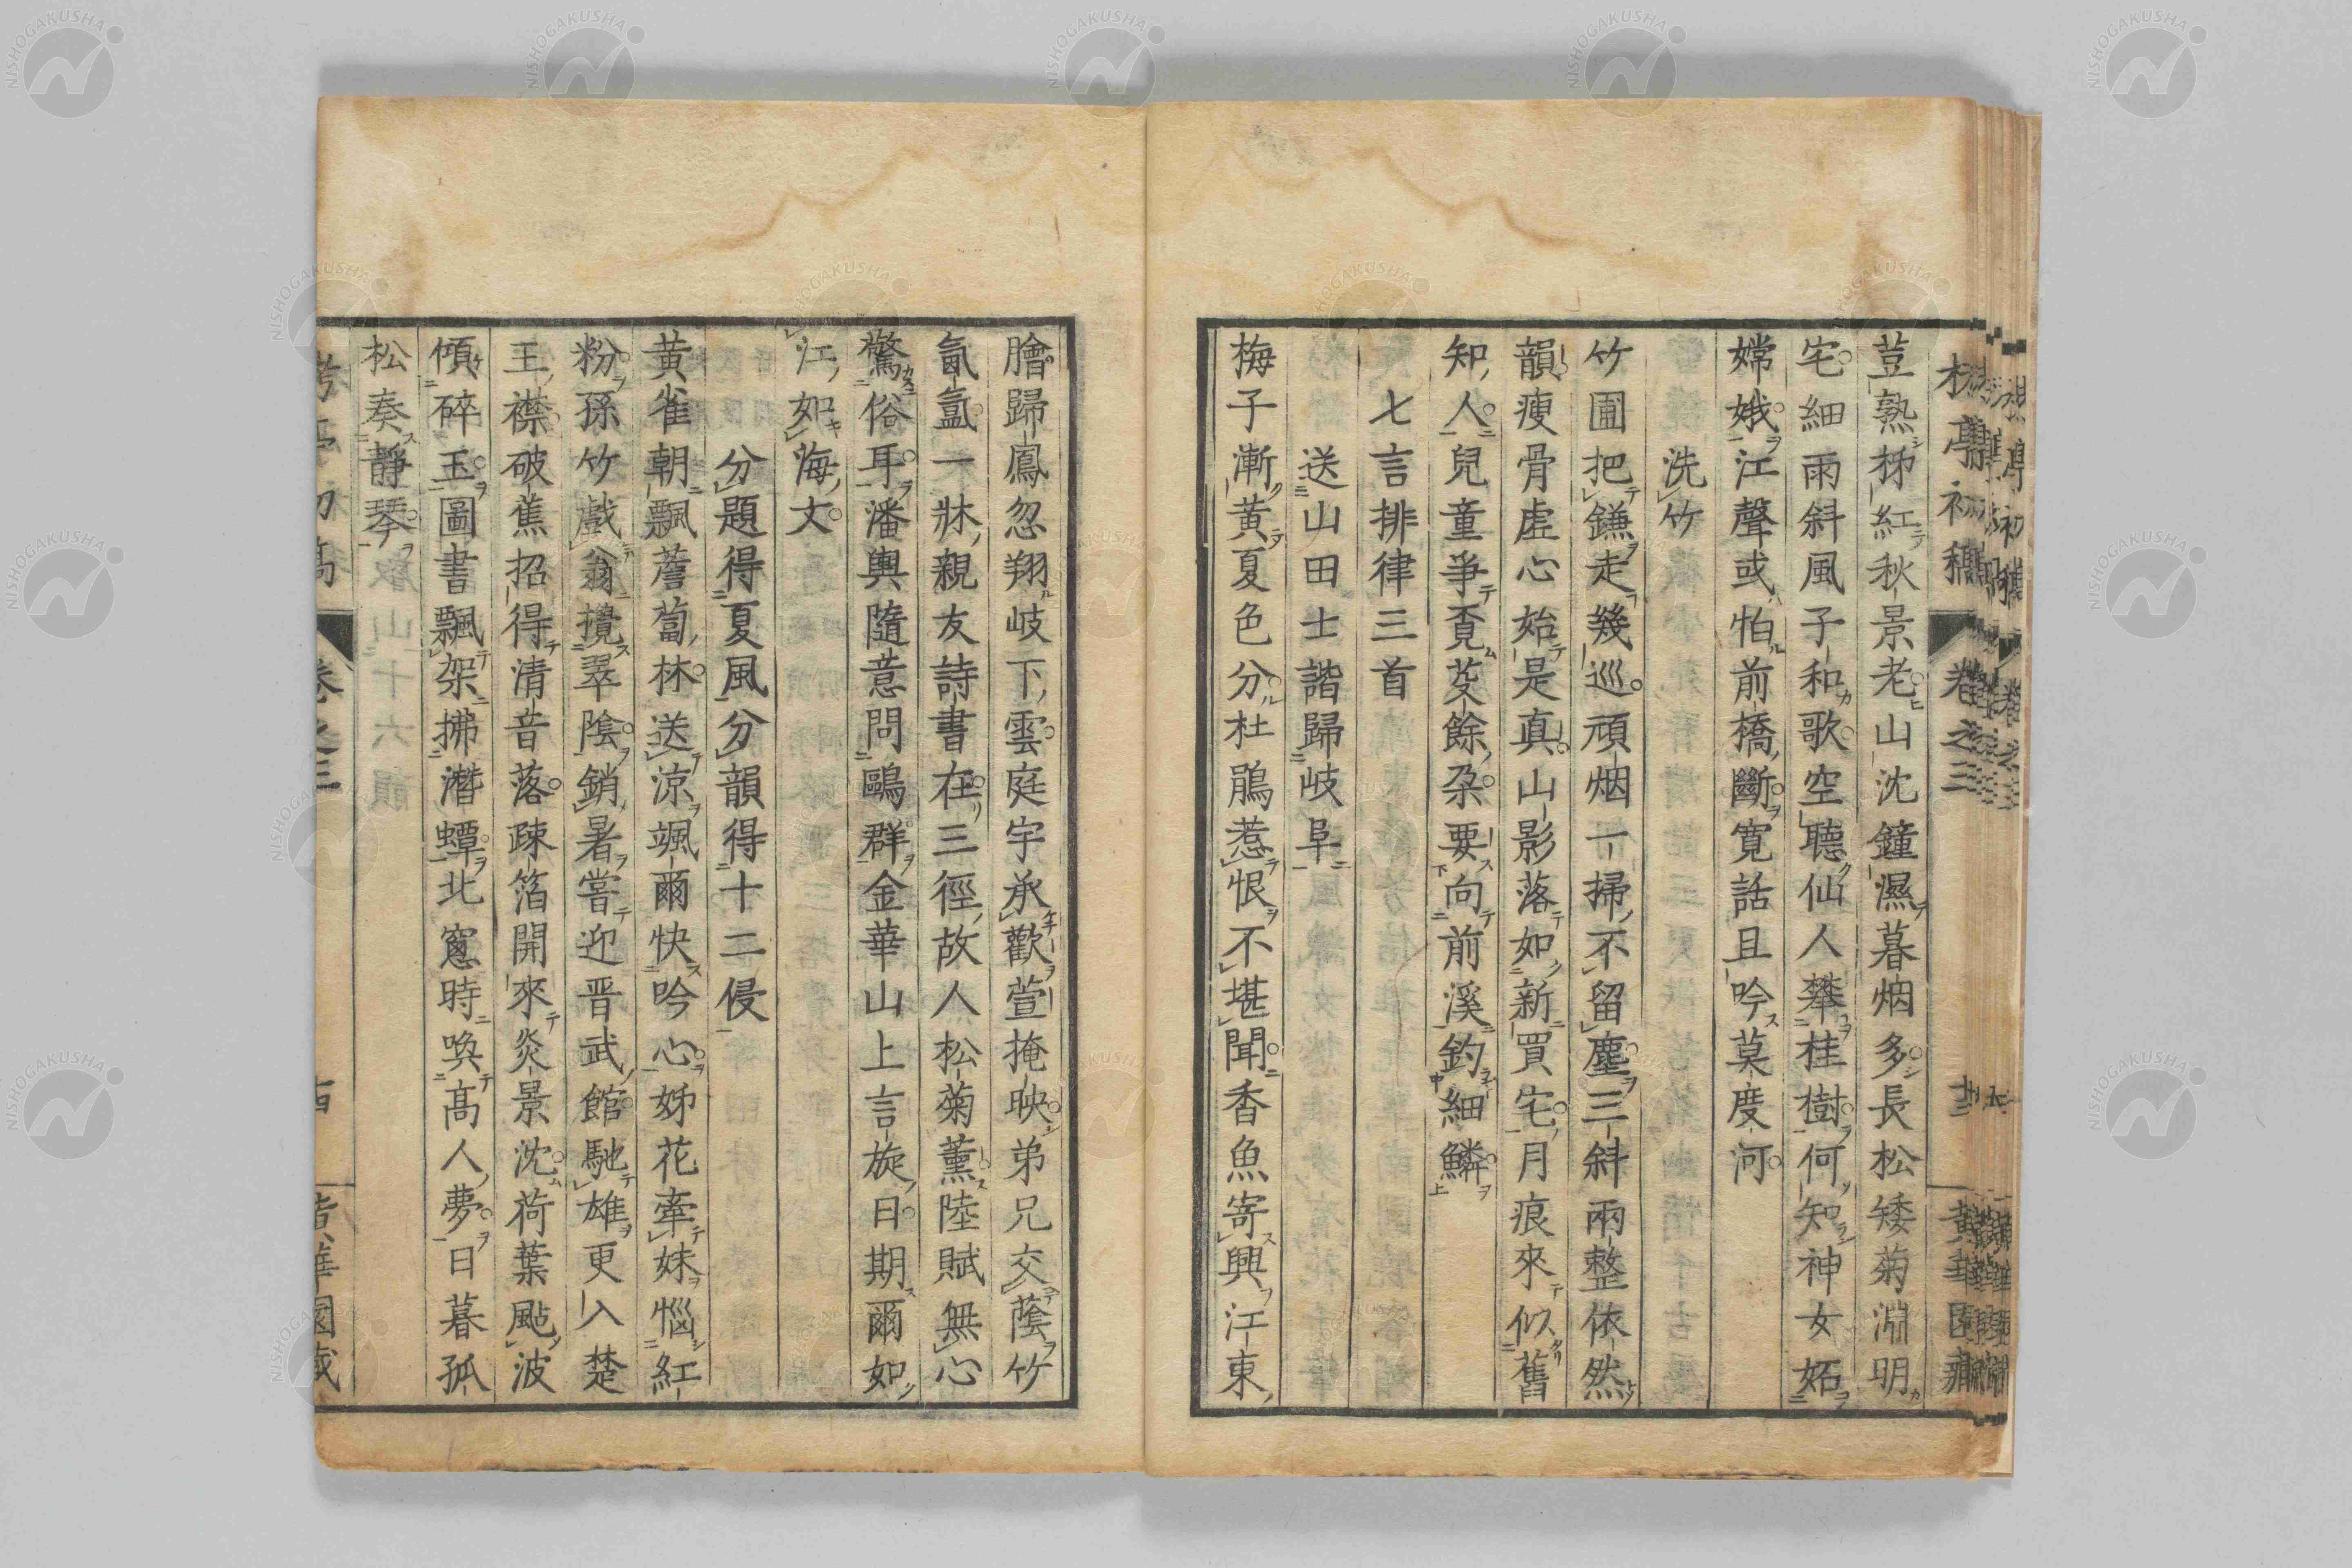 荳熟梯紅秋景老山沈鐘濕暮烟多長松矮菊淵明
宅細雨斜風子和歌空聽仙人攀桂樹何知神女妬
嫦娥江聲或怕前橋斷寬話且吟莫度河
洗竹
竹圃把鎌走幾巡頑烟一掃不留塵三斜兩整依然
韻瘦骨虛心始是真山影落如新買宅月痕來似舊
知人兒童爭覔芟餘朶要向前溪釣細鱗
七言排律三首
送山田士諧歸岐阜
梅子漸黃夏色分杜鵑惹恨不堪聞香魚寄興江東
膾歸鳳忽翔岐下雲庭宇承歡萱掩映弟兄交蔭竹
氤氳一牀親友詩書在三徑故人松菊薰陸賦無心
驚俗耳潘輿隨意問鷗群金華山上言旋日期爾如
江如海文
分題得夏風分韻得十二侵
黃雀朝飄薝蔔林送涼颯爾快吟心姊花牽妹惱紅
粉孫竹戲翁攪翠陰銷暑嘗迎晋武館馳雄更入楚
王襟破蕉招得清音落疎箔開來炎景沈荷葉颭波
傾碎玉圖書飄架拂潛蟫北窻時喚高人夢日暮孤
松奏靜琴
卷之三